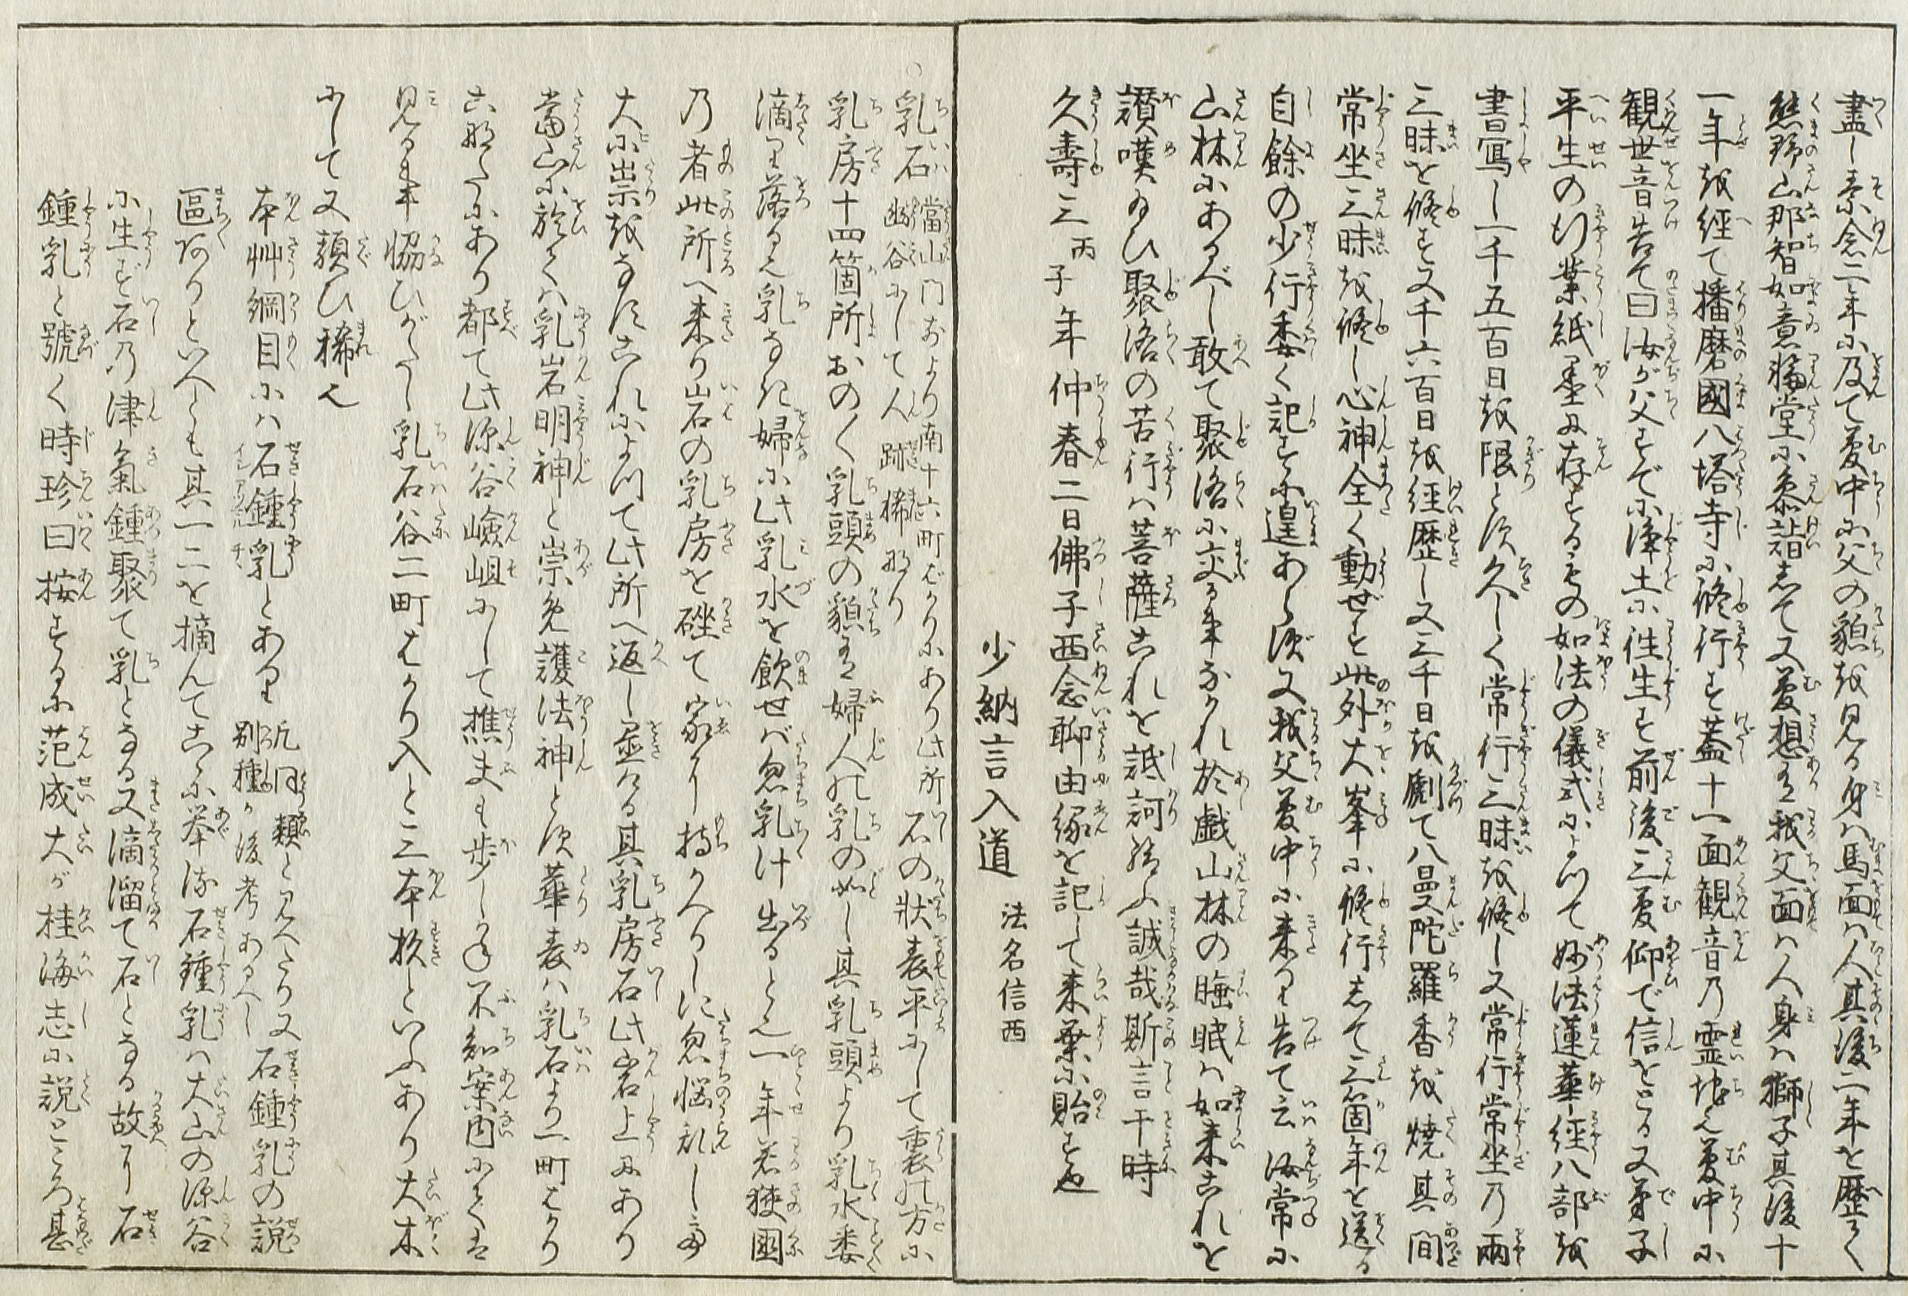 盡し素念二年に及て夢中に父の貌を見る身ハ馬面ハ人其後二年を歴て
熊野山那智如意輪堂に参詣して又夢想を我父面ハ人身ハ獅子其後十
一年を経て播磨國八塔寺に修行す蓋十一面観音乃霊地也夢中に
観世音告て曰汝が父すでに浄土に往生す前後三夢仰で信をとる又弟子
平生の行業紙墨に存するもの如法の儀式によつて妙法蓮華経八部を
書寫し一千五百日を限とす久しく常行三昧を修し又常行常坐乃兩
三昧を修す又千六百日を経歴し又三千日を劃て八曼陀羅香を焼其間
常坐三昧を修し心神全く動ぜず此外大峯に修行して三箇年を送る
自餘の少行委く記すに遑あらず又我父夢中に来り告て云汝常に
山林にあるべし敢て聚洛に交る事なかれ於戯山林の睡眠ハ如来これを
讃嘆たまひ聚洛の苦行ハ菩薩これを詆訶給ふ誠哉斯言于時
久壽三丙子年仲春二日佛子西念聊由縁を記して来葉に貽す也
少納言入道 法名信西
○乳石 當山門前より南十六町ばかりにあり此所幽谷にして人跡稀なり 石の状表平にして裏の方に
乳房十四箇所おの〳〵乳頭の貌を婦人の乳の如し其乳頭より乳水委
滴り落る也乳なき婦に此乳水を飲せバ忽乳汁出ると也一年若狭國
乃者此所へ来り岩の乳房を砕て家に持かへりしに忽悩乱し夢
大に祟をなすこれによつて此所へ返し置たる其乳房石此岩上にあり
當山に於てハ乳岩明神と崇免護法神とす華表ハ乳石より一町はかり
こなたにあり都て此深谷嶮岨にして樵夫も歩しかね不知案内にてハ
見る事協ひがたし乳石谷二町はかり入と三本杉といふあり大木
にして又類ひ稀也
本艸綱目にハ石鍾乳とあり 凡同類と見へたり又別種か後考あるべし 石鍾乳の説
區なりといへとも其一二を摘んてこゝに挙る石鍾乳ハ大山の深谷
に生ず石乃津氣鍾聚て乳となる又滴溜て石となる故に石
鍾乳と號く時珍曰按するに范成大が桂海志に説ところ甚